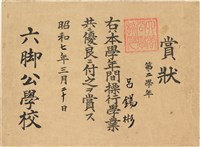 賞狀
第二學年
呂錫彬
右ハ本學年間操行學業
共優良ニ付之ヲ賞ス
昭和七年三月二十日
六脚公學校